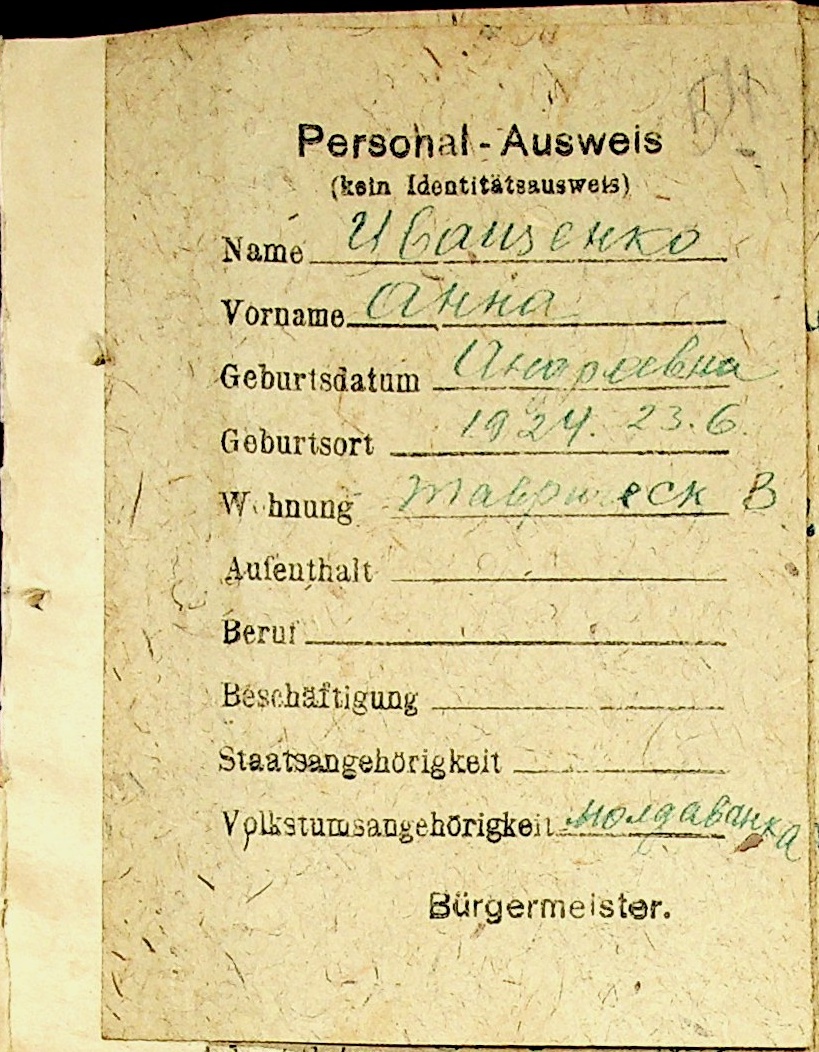 54
Personal-Ausweis
(kein Identitätsausweis)
Name Иващенко
Vorname Анна
Geburtsdatum Андреевна
Geburtsort 1924. 23.6.
Wohnung Таврическ В
Aufenthalt
Beruf
Beschäftigung
Staatsangehörigkeit
Volkstumsangehörigkeit молдаванка
Bürgermeister.